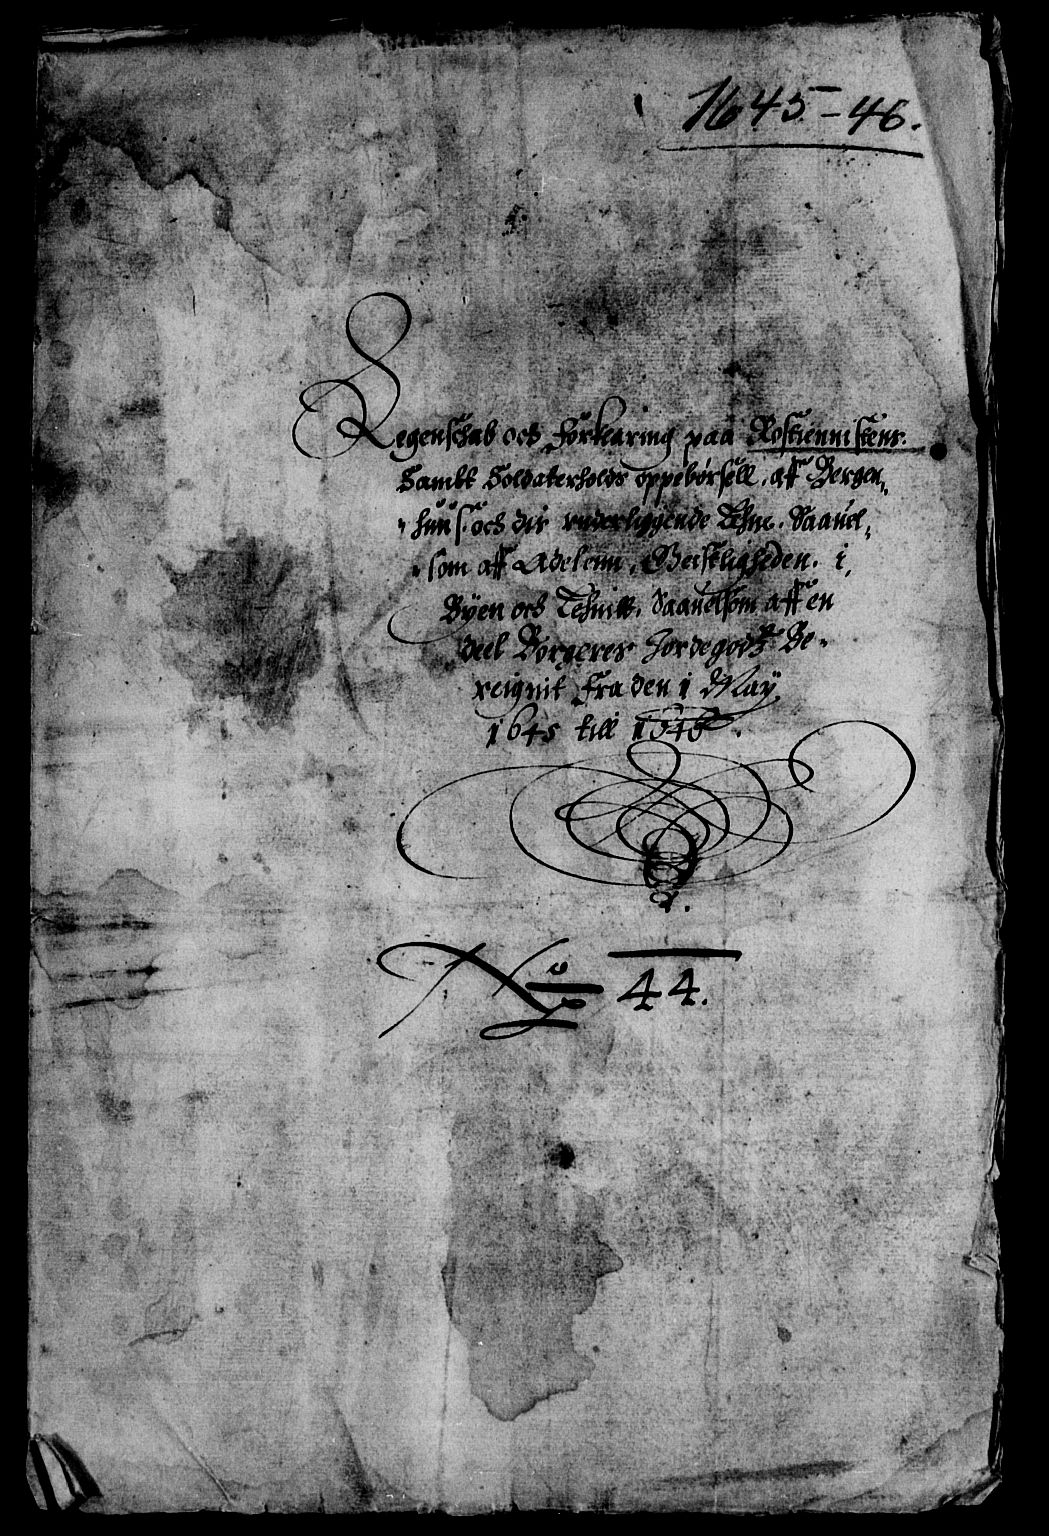 1645-46.
Regenschab och Forklaring paa Rostiennistens.
Sambt Soldaterholds oppebörsell, aff Bergen,,
huus och dis underliggende Lehne. Saauel,
som aff Adelenn, Geistligheden. i,
Byen och Lehnitt, Saauelsom aff en
deel Borgeres Jordegods Be-
reignit fra den 1 May
1645 till 1646.
No 44.